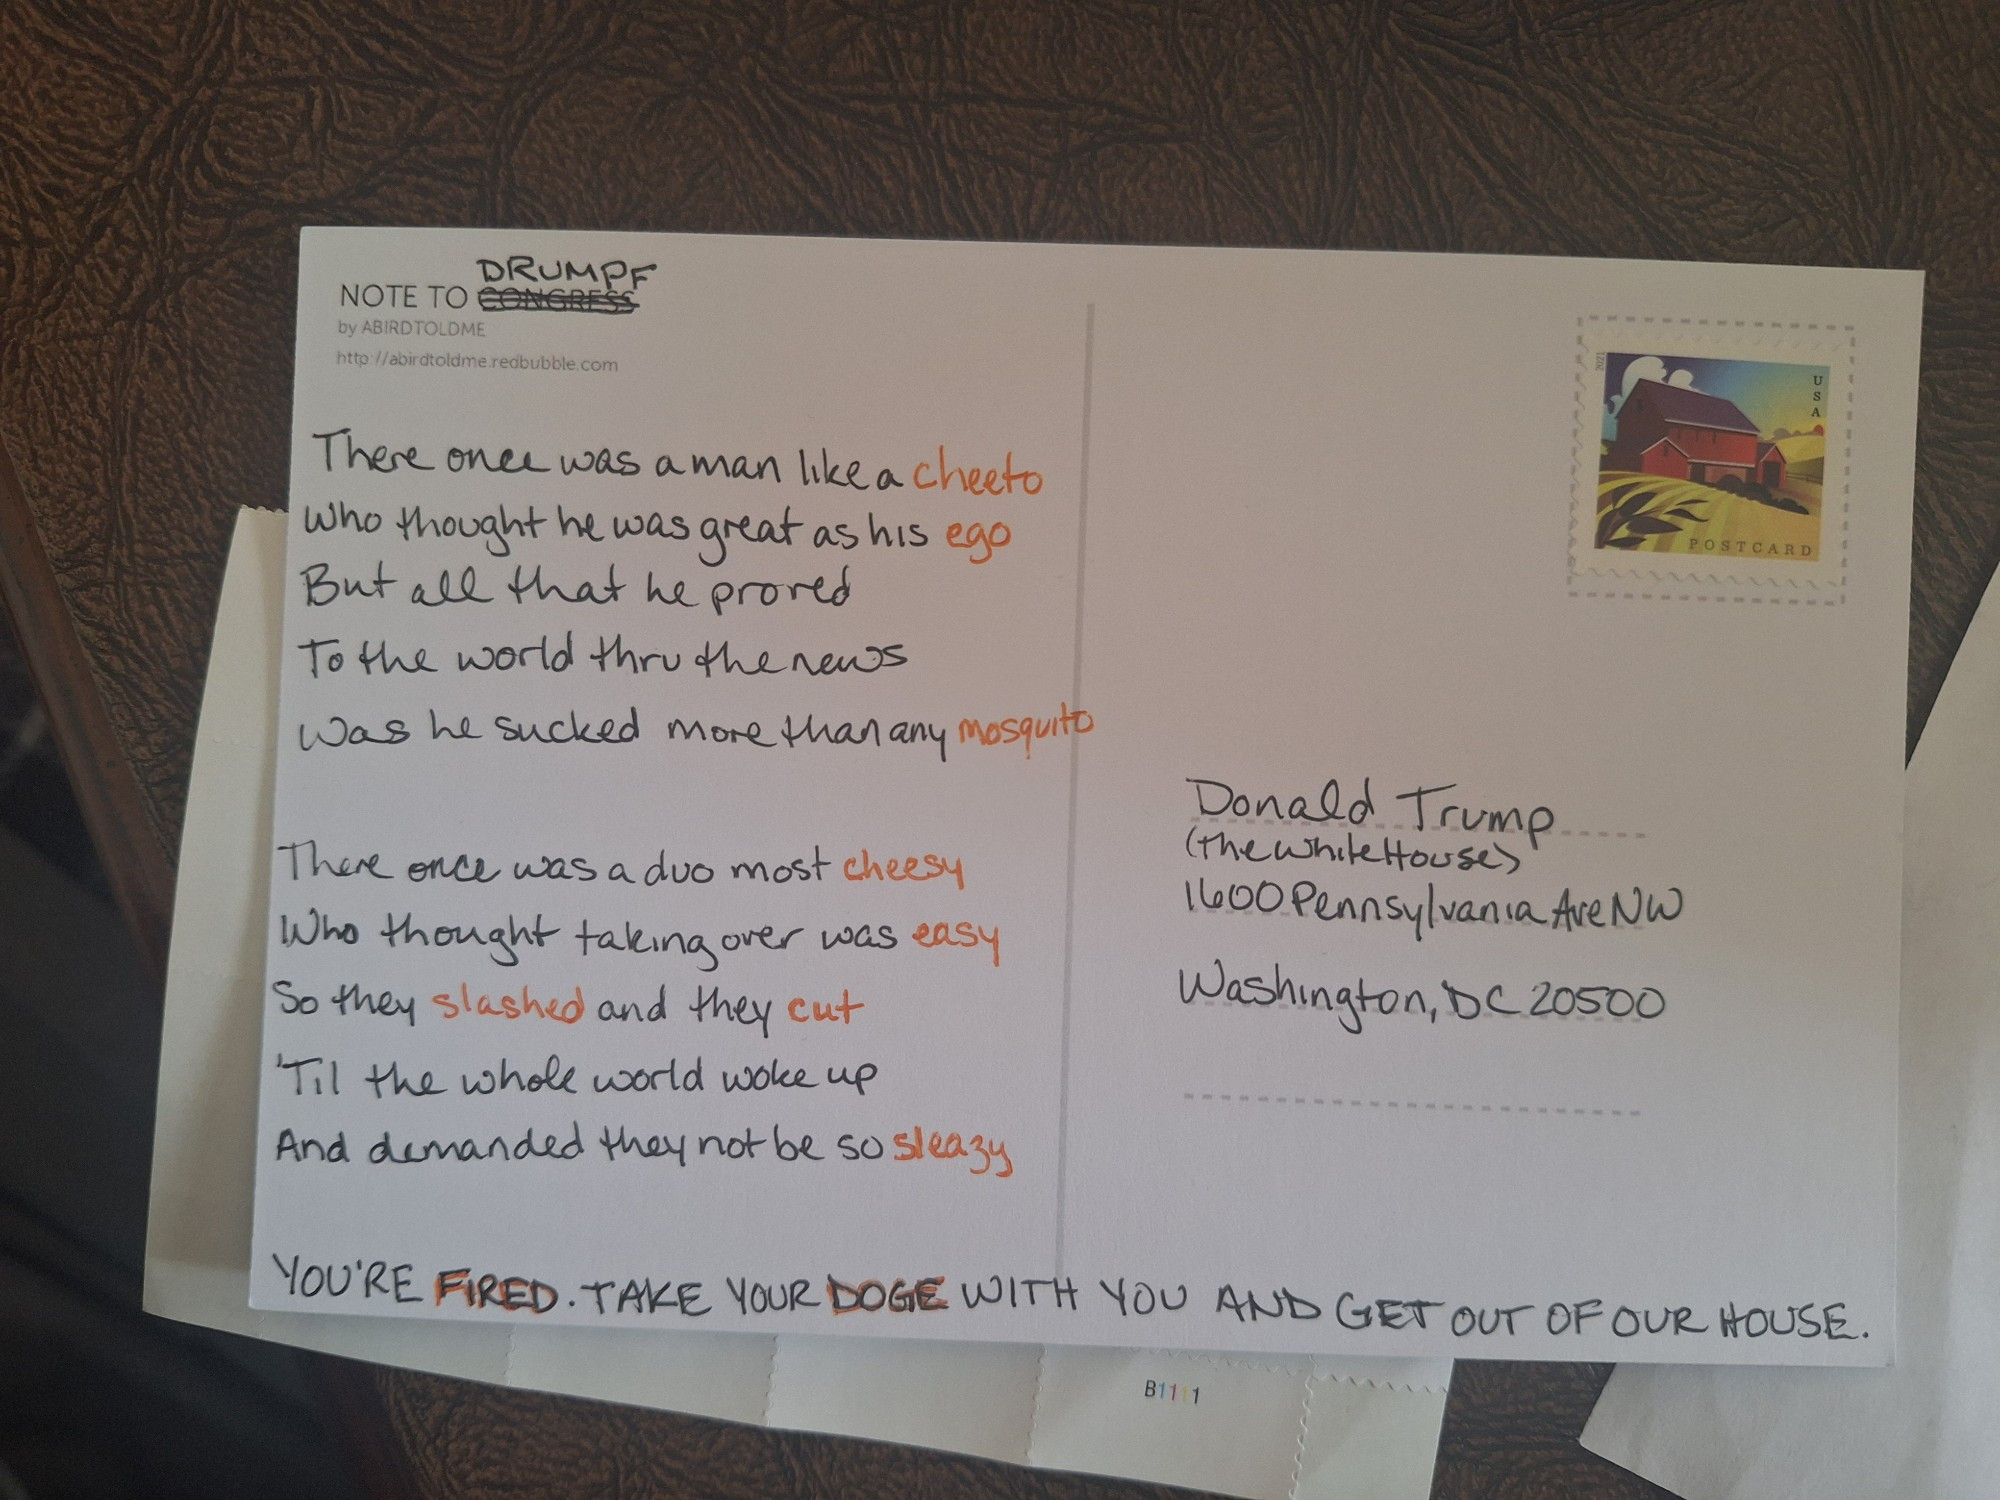 DRUMPF
NOTE TO CONGRESS
by ABIRDTOLDME
http://abirdtoldme.redbubble.com
There once was a man like a cheeto
Who thought he was great as his ego
But all that he proved
To the world thru the news
Was he sucked more than any mosquito
There once was a duo most cheesy
Who thought taking over was easy
So they slashed and they cut
'Til the whole world woke up
And demanded they not be so sleazy
YOU'RE FIRED. TAKE YOUR DOGE WITH YOU AND GET OUT OF OUR HOUSE.
2021
USA
POSTCARD
Donald Trump
(the White House)
1600 Pennsylvania Ave NW
Washington, DC 20500
B1111